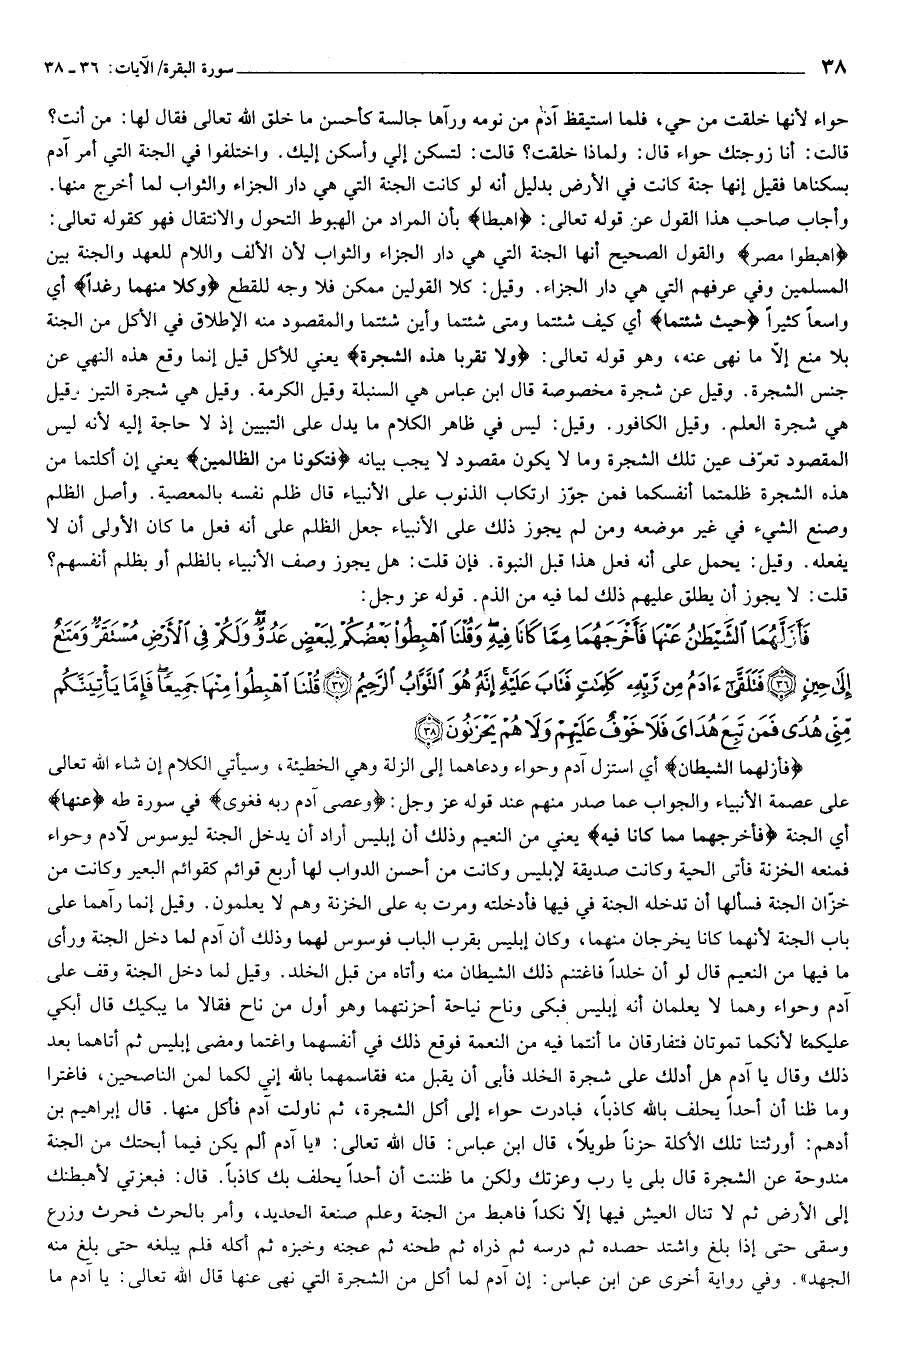 ٣٨ سورة البقرة/ الآيات: ٣٦ ـ ٣٨
حواء لأنها خلقت من حي، فلما استيقظ آدم من نومه ورآها جالسة كأحسن ما خلق الله تعالى فقال لها: من أنت؟
قالت: أنا زوجتك حواء قال: ولماذا خلقت؟ قالت: لتسكن إلي وأسكن إليك. واختلفوا في الجنة التي أمر آدم
بسكناها فقيل إنها جنة كانت في الأرض بدليل أنه لو كانت الجنة التي هي دار الجزاء والثواب لما أخرج منها.
وأجاب صاحب هذا القول عن قوله تعالى: ﴿اهبطا﴾ بأن المراد من الهبوط التحول والانتقال فهو كقوله تعالى:
﴿اهبطوا مصر﴾ والقول الصحيح أنها الجنة التي هي دار الجزاء والثواب لأن الألف واللام للعهد والجنة بين
المسلمين وفي عرفهم التي هي دار الجزاء. وقيل: كلا القولين ممكن فلا وجه للقطع ﴿وكلا منهما رغداً﴾ أي
واسعاً كثيراً ﴿حيث شئتما﴾ أي كيف شئتما ومتى شئتما وأين شئتما والمقصود منه الإطلاق في الأكل من الجنة
بلا منع إلّا ما نهى عنه، وهو قوله تعالى: ﴿ولا تقربا هذه الشجرة﴾ يعني للأكل قيل إنما وقع هذه النهي عن
جنس الشجرة. وقيل عن شجرة مخصوصة قال ابن عباس هي السنبلة وقيل الكرمة. وقيل هي شجرة التين وقيل
هي شجرة العلم. وقيل الكافور. وقيل: ليس في ظاهر الكلام ما يدل على التبيين إذ لا حاجة إليه لأنه ليس
المقصود تعرّف عين تلك الشجرة وما لا يكون مقصود لا يجب بيانه ﴿فتكونا من الظالمين﴾ يعني إن أكلتما من
هذه الشجرة ظلمتما أنفسكما فمن جوّز ارتكاب الذنوب على الأنبياء قال ظلم نفسه بالمعصية. وأصل الظلم
وصنع الشيء في غير موضعه ومن لم يجوز ذلك على الأنبياء جعل الظلم على أنه فعل ما كان الأولى أن لا
يفعله. وقيل: يحمل على أنه فعل هذا قبل النبوة. فإن قلت: هل يجوز وصف الأنبياء بالظلم أو بظلم أنفسهم؟
قلت: لا يجوز أن يطلق عليهم ذلك لما فيه من الذم. قوله عز وجل:
فَأَزَلَّهُمَا الشَّيْطَانُ عَنْهَا فَأَخْرَجَهُمَا مِمَّا كَانَا فِيهِ وَقُلْنَا اهْبِطُوا بَعْضُكُمْ لِبَعْضٍ عَدُوٌّ وَلَكُمْ فِي الْأَرْضِ مُسْتَقَرٌّ وَمَتَاعٌ
إِلَى حِينٍ ﴿٣٦﴾ فَتَلَقَّى آدَمُ مِن رَّبِّهِ كَلِمَاتٍ فَتَابَ عَلَيْهِ إِنَّهُ هُوَ التَّوَّابُ الرَّحِيمُ ﴿٣٧﴾ قُلْنَا اهْبِطُوا مِنْهَا جَمِيعًا فَإِمَّا يَأْتِيَنَّكُم
مِّنِّي هُدًى فَمَن تَبِعَ هُدَايَ فَلَا خَوْفٌ عَلَيْهِمْ وَلَا هُمْ يَحْزَنُونَ ﴿٣٨﴾
﴿فأزلهما الشيطان﴾ أي استزل آدم وحواء ودعاهما إلى الزلة وهي الخطيئة، وسيأتي الكلام إن شاء الله تعالى
على عصمة الأنبياء والجواب عما صدر منهم عند قوله عز وجل: ﴿وعصى آدم ربه فغوى﴾ في سورة طه ﴿عنها﴾
أي الجنة ﴿فأخرجهما مما كانا فيه﴾ يعني من النعيم وذلك أن إبليس أراد أن يدخل الجنة ليوسوس لآدم وحواء
فمنعه الخزنة فأتى الحية وكانت صديقة لإبليس وكانت من أحسن الدواب لها أربع قوائم كقوائم البعير وكانت من
خزّان الجنة فسألها أن تدخله الجنة في فيها فأدخلته ومرت به على الخزنة وهم لا يعلمون. وقيل إنما رآهما على
باب الجنة لأنهما كانا يخرجان منهما، وكان إبليس بقرب الباب فوسوس لهما وذلك أن آدم لما دخل الجنة ورأى
ما فيها من النعيم قال لو أن خلداً فاغتنم ذلك الشيطان منه وأتاه من قبل الخلد. وقيل لما دخل الجنة وقف على
آدم وحواء وهما لا يعلمان أنه إبليس فبكى وناح نياحة أحزنتهما وهو أول من ناح فقالا ما يبكيك قال أبكي
عليكما لأنكما تموتان فتفارقان ما أنتما فيه من النعمة فوقع ذلك في أنفسهما واغتما ومضى إبليس ثم أتاهما بعد
ذلك وقال يا آدم هل أدلك على شجرة الخلد فأبى أن يقبل منه فقاسمهما بالله إني لكما لمن الناصحين، فاغترا
وما ظنا أن أحداً يحلف بالله كاذباً، فبادرت حواء إلى أكل الشجرة، ثم ناولت آدم فأكل منها. قال إبراهيم بن
أدهم: أورثتنا تلك الأكلة حزناً طويلاً، قال ابن عباس: قال الله تعالى: «يا آدم ألم يكن فيما أبحتك من الجنة
مندوحة عن الشجرة قال بلى يا رب وعزتك ولكن ما ظننت أن أحداً يحلف بك كاذباً. قال: فبعزتي لأهبطنك
إلى الأرض ثم لا تنال العيش فيها إلّا نكداً فاهبط من الجنة وعلم صنعة الحديد، وأمر بالحرث فحرث وزرع
وسقى حتى إذا بلغ واشتد حصده ثم درسه ثم ذراه ثم طحنه ثم عجنه وخبزه ثم أكله فلم يبلغه حتى بلغ منه
الجهد». وفي رواية أخرى عن ابن عباس: إن آدم لما أكل من الشجرة التي نهى عنها قال الله تعالى: يا آدم ما